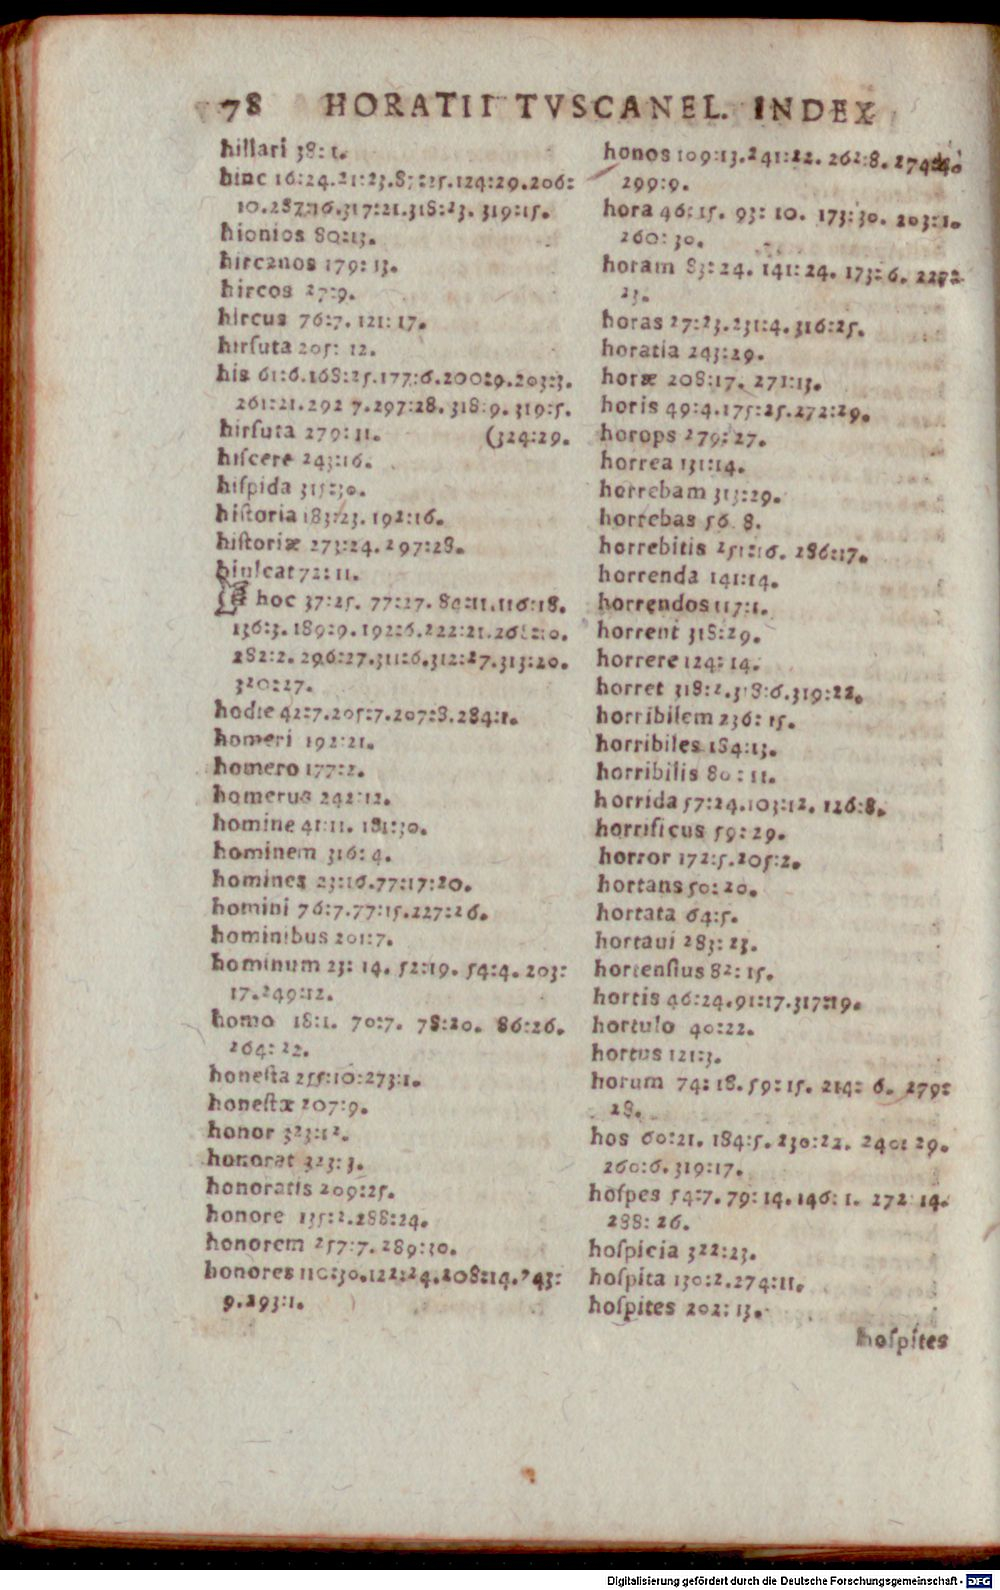 78 HORATII TVSCANEL. INDEX
hillari 38:1.
hinc 16:24.21:23.87:25.124:29.206:
10.287:16.317:21.318:23. 319:15.
hionios 80:13.
hircanos 179:13.
hircos 27:9.
hircus 76:7. 121:17.
hirſuta 205: 12.
his 61:6.168:25.177:6.200:9.203:3.
261:21.292 7.297:28. 318:9. 319:5.
hirſuta 279:11. (324:29.
hiſcere 243:16.
hiſpida 315:30.
hiſtoria 183:23. 192:16.
hiſtoriæ 273:24. 297:28.
hiulcat 72:11.
hoc 37:25. 77:27. 84:11.116:18.
136:3. 189:9. 192:6.222:21.
282:2. 296:27.311:6.312:27.313:20.
320:27.
hodie 42:7.205:7.207:8.284:1.
homeri 192:21.
homero 177:2.
homerus 242:12.
homine 41:11. 181:30.
hominem 316: 4.
homines 23:16.77:17:20.
homini 76:7.77:15.227:26.
hominibus 201:7.
hominum 23: 14. 52:19. 54:4. 203:
17.249:12.
homo 18:1. 70:7. 78:20. 86:26.
264: 22.
honeſta 255:10:273:1.
honeſtæ 207:9.
honor 323:12.
honorat 323:3.
honoratis 209:25.
honore 135:2.288:24.
honorem 257:7. 289:30.
honores 110:30.122:24.208:14.243:
9.293:1.
honos 109:13.241:22. 262:8.
299:9.
hora 46:15. 93: 10. 173:30. 203:1.
260:30.
horam 83:24. 141:24. 173:6.
23.
horas 27:23.231:4.316:25.
horatia 243:29.
horæ 208:17. 271:13.
horis 49:4.175:25.272:29.
horops 279:27.
horrea 131:14.
horrebam 313:29.
horrebas 56 8.
horrebitis 251:16. 286:17.
horrenda 141:14.
horrendos 117:1.
horrent 318:29.
horrere 124:14.
horret 318:2.318:6.319:22.
horribilem 236: 15.
horribiles 184:13.
horribilis 80:11.
horrida 57:24.103:12. 126:8.
horrificus 59:29.
horror 172:5.205:2.
hortans 50:20.
hortata 64:5.
hortaui 283: 23.
hortenſius 82: 15.
hortis 46:24.91:17.317:19.
hortulo 40:22.
hortus 121:3.
horum 74: 18. 59:15. 214: 6. 279:
28.
hos 60:21. 184:5. 230:22. 240: 29.
260:6. 319:17.
hoſpes 54:7. 79:14. 146: 1. 272 14.
288: 26.
hoſpicia 322:23.
hoſpita 130:2.274:11.
hoſpites 202: 13.
hoſpites
Digitalisierung gefördert durch die Deutsche Forschungsgemeinschaft - DFG